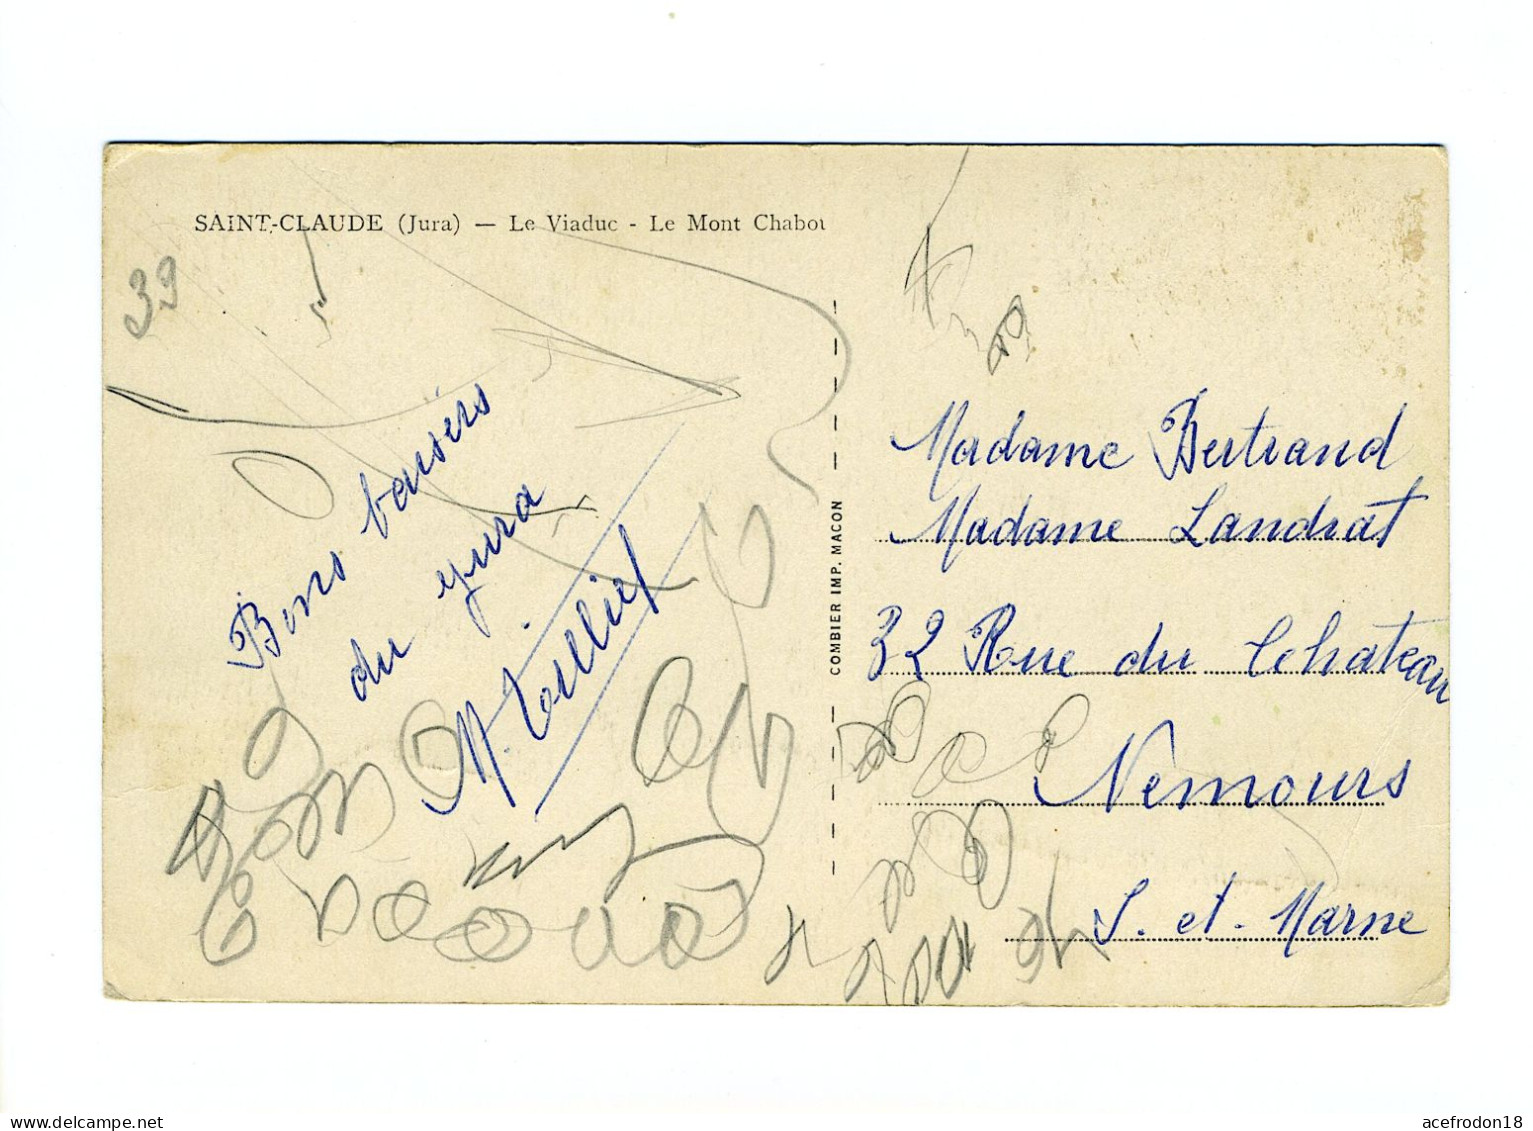 SAINT-CLAUDE (Jura) — Le Viaduc - Le Mont Chabot
39
Bons baisers
du yura
COMBIER IMP. MACON
Madame Bertrand
Madame Landrat
32 Rue du Château
Nemours
S. et. Marne
acefrodon18